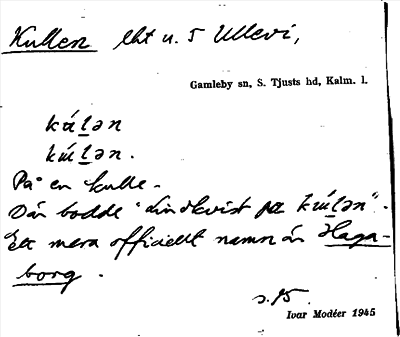 Kullen lht u. 5 Ullevi,
Gamleby sn, S. Tjusts hd, Kalm. l.
kúlən
kúlən.
På en kulle.
Där bodde "Lindkvist på kúlən".
Ett mera officiellt namn än Haga-
borg.
s. 15.
Ivar Modéer 1945